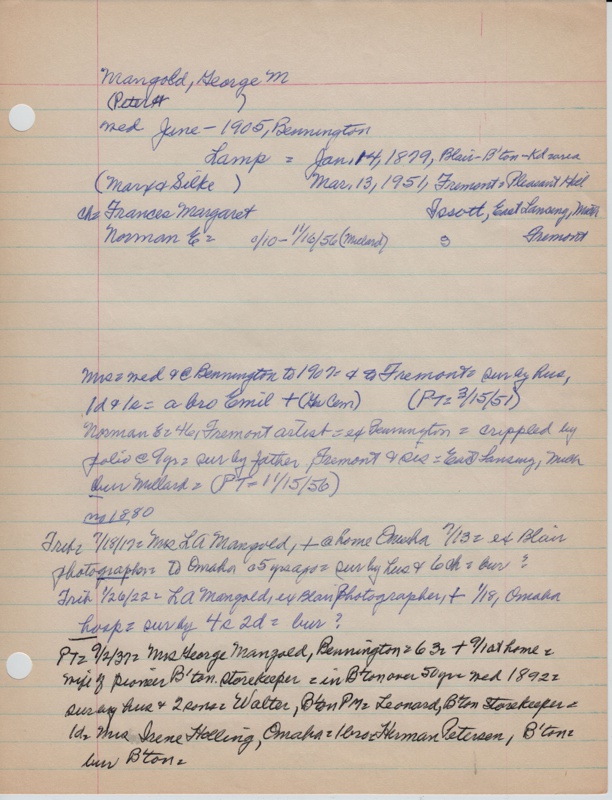 Mangold, George M
(Peter H )
med June - 1905, Bennington
Lamp = Jan. 14, 1879, Blair-B'ton-Kd area
(Marx & Silke ) Mar. 13, 1951, Fremont = Pleasant Hill
Ch = Frances Margaret Issott, East Lansing, Mich
Norman E = 0/10 - 11/16/56 (Millard) S Fremont
Mrs = med & C Bennington to 1907 = & to Fremont = sur by hus,
1d & 1s = a bro Emil + (Cem) (PT = 3/15/51)
Norman E = 46, Fremont artist = ex Bennington = crippled by
polio @ 9 yr = sur by father, Fremont & sis = East Lansing, Mich
bur Millard = (PT = 11/15/56)
1880
Trib = 7/18/17 = Mrs L A Mangold, + a home Omaha 7/13 = ex Blair
photographer = to Omaha a 5 yrs ago = sur by hus & 6 ch = bur ?
Trib 1/26/22 = L A Mangold, ex Blair Photographer, + 1/18, Omaha
hosp = sur by 4s 2d = bur ?
PT = 9/2/37 = Mrs George Mangold, Bennington = 63 = + 9/1 at home =
wife of pioneer B'ton storekeeper = in B'ton over 50 yr = med 1892 =
sur by hus & 2 sons = Walter, B'ton PM = Leonard, B'ton storekeeper =
1d = Mrs Irene Holling, Omaha = 1 bro = Herman Petersen, B'ton =
bur B'ton =